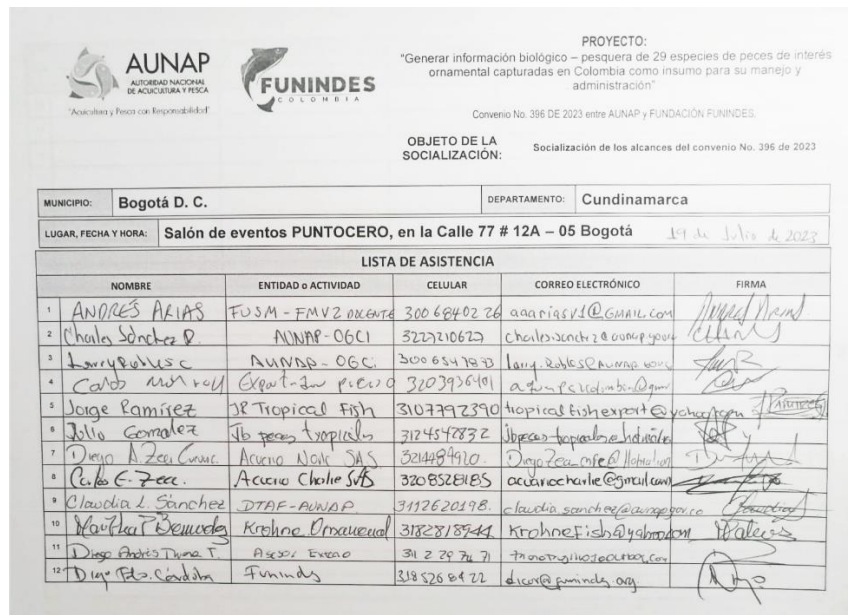 AUNAP
AUTORIDAD NACIONAL
DE ACUICULTURA Y PESCA
"Acuicultura y Pesca con Responsabilidad"
FUNINDES
COLOMBIA
PROYECTO:
"Generar información biológico – pesquera de 29 especies de peces de interés
ornamental capturadas en Colombia como insumo para su manejo y
administración"
Convenio No. 396 DE 2023 entre AUNAP y FUNDACIÓN FUNINDES.
OBJETO DE LA
SOCIALIZACIÓN:
Socialización de los alcances del convenio No. 396 de 2023
MUNICIPIO: Bogotá D. C. DEPARTAMENTO: Cundinamarca
LUGAR, FECHA Y HORA: Salón de eventos PUNTOCERO, en la Calle 77 # 12A – 05 Bogotá 19 de Julio de 2023
LISTA DE ASISTENCIA
NOMBRE ENTIDAD o ACTIVIDAD CELULAR CORREO ELECTRÓNICO FIRMA
1 ANDRÉS ARIAS FUSM - FMVZ DOCENTE 300 6840226 aaariasv1@GMAIL.com
2 Charles Sánchez AUNAP-OGCI 3227210627
3 AUNAP-OGCI
4 3203936401
5 Jorge Ramírez JR Tropical Fish 3107792390 tropicalfishexport@yahoo.com
6 Julio Gomzalez Jb peces tropicales 3124547832
7 Diego A. Zea Acuario SAS
8 Carlos E. Zea. Acuario Charlie SAS 3208528185 acuariocharlie@gmail.com
9 Claudia L. Sánchez DTAF-AUNAP 3112620198. claudia.sanchez@aunap.gov.co
10 Bermudez Krohne Ornamental 3182818944 Krohnefish@yahoo.com
11 Diego Andrés T. Asesor 312 29 74 71
12 Diego Fdo. Córdoba Funindes 318526 8422